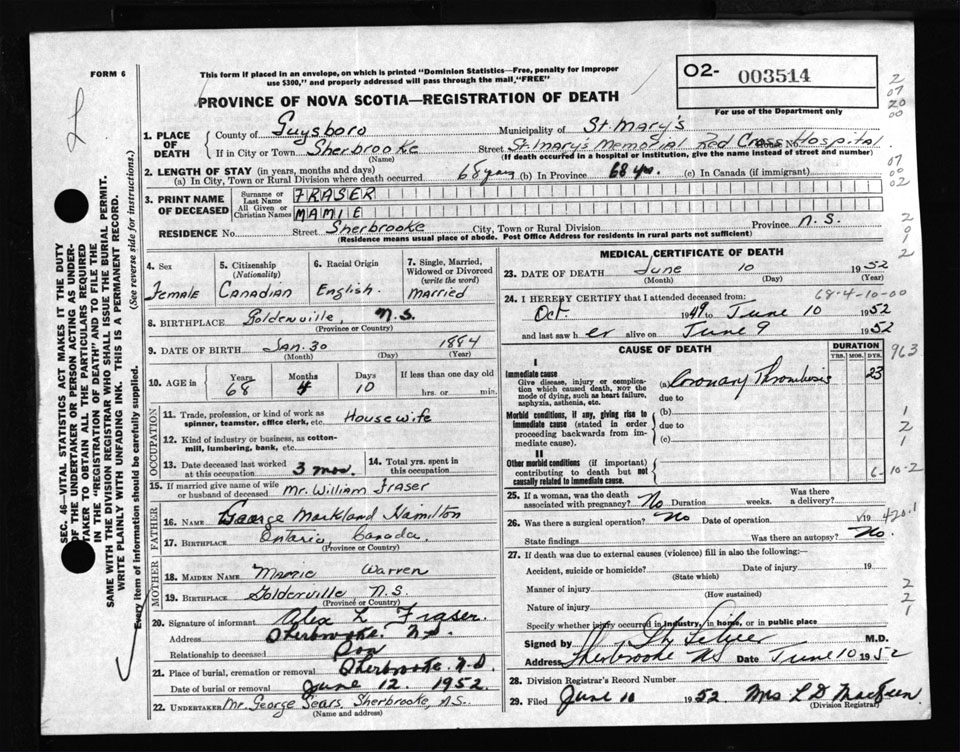 FORM 6
This form if placed in an envelope, on which is printed "Dominion Statistics—Free, penalty for improper
use $300," and properly addressed will pass through the mail, "FREE"
O2- 003514
For use of the Department only
PROVINCE OF NOVA SCOTIA—REGISTRATION OF DEATH
1. PLACE OF DEATH
County of Guysboro Municipality of St. Mary's
If in City or Town Sherbrooke Street St. Mary's Memorial Red Cross Hospital
(Name) (If death occurred in a hospital or institution, give the name instead of street and number)
2. LENGTH OF STAY (in years, months and days)
(a) In City, Town or Rural Division where death occurred 68 years (b) In Province 68 yrs. (c) In Canada (if immigrant)
3. PRINT NAME OF DECEASED
Surname or Last Name FRASER
All Given or Christian Names MAMIE
RESIDENCE No. Street Sherbrooke City, Town or Rural Division Province N.S.
(Residence means usual place of abode. Post Office Address for residents in rural parts not sufficient)
4. Sex Female
5. Citizenship (Nationality) Canadian
6. Racial Origin English.
7. Single, Married, Widowed or Divorced (write the word) Married
8. BIRTHPLACE Goldenville, N.S.
(Province or Country)
9. DATE OF BIRTH Jan. 30 1884
(Month) (Day) (Year)
10. AGE in Years 68 Months 4 Days 10 If less than one day old hrs. or min.
OCCUPATION
11. Trade, profession, or kind of work as spinner, teamster, office clerk, etc. Housewife
12. Kind of industry or business, as cotton-mill, lumbering, bank, etc.
13. Date deceased last worked at this occupation 3 mos. 14. Total yrs. spent in this occupation
15. If married give name of wife or husband of deceased Mr. William Fraser
FATHER
16. NAME George Markland Hamilton
17. BIRTHPLACE Ontario, Canada.
(Province or Country)
MOTHER
18. MAIDEN NAME Warren
19. BIRTHPLACE Goldenville N.S.
(Province or Country)
20. Signature of informant Alex L. Fraser.
Address Sherbrooke. N.S.
Relationship to deceased Son
21. Place of burial, cremation or removal Sherbrooke. N.S.
Date of burial or removal June 12. 1952.
22. UNDERTAKER Mr. George Sears, Sherbrooke, N.S.
(Name and address)
MEDICAL CERTIFICATE OF DEATH
23. DATE OF DEATH June 10 1952
(Month) (Day) (Year)
24. I HEREBY CERTIFY that I attended deceased from: 68-4-10-00
Oct 1949 to June 10 1952
and last saw her alive on June 9 1952
CAUSE OF DEATH
DURATION
YRS. MOS. DYS.
963
I
Immediate cause
Give disease, injury or complication which caused death, NOT the mode of dying, such as heart failure, asphyxia, asthenia, etc.
(a) Coronary Thrombosis 23
due to
Morbid conditions, if any, giving rise to immediate cause (stated in order proceeding backwards from immediate cause).
(b)
due to
(c)
II
Other morbid conditions (if important) contributing to death but not causally related to immediate cause.
6-10-2
25. If a woman, was the death associated with pregnancy? No Duration weeks. Was there a delivery?
26. Was there a surgical operation? No Date of operation 19 420.1
State findings Was there an autopsy? No.
27. If death was due to external causes (violence) fill in also the following:—
Accident, suicide or homicide? Date of injury 19
(State which)
Manner of injury
(How sustained)
Nature of injury
Specify whether injury occurred in industry, in home, or in public place
Signed by M.D.
Address Sherbrooke NS Date June 10 1952
28. Division Registrar's Record Number
29. Filed June 10 1952 Mrs L D MacKeen
(Division Registrar)
SEC. 46—VITAL STATISTICS ACT MAKES IT THE DUTY
OF THE UNDERTAKER OR PERSON ACTING AS UNDER-
TAKER TO OBTAIN ALL THE PARTICULARS REQUIRED
IN THE "REGISTRATION OF DEATH" AND TO FILE THE
SAME WITH THE DIVISION REGISTRAR WHO SHALL ISSUE THE BURIAL PERMIT.
WRITE PLAINLY WITH UNFADING INK. THIS IS A PERMANENT RECORD.
Every item of information should be carefully supplied. (See reverse side for instructions.)